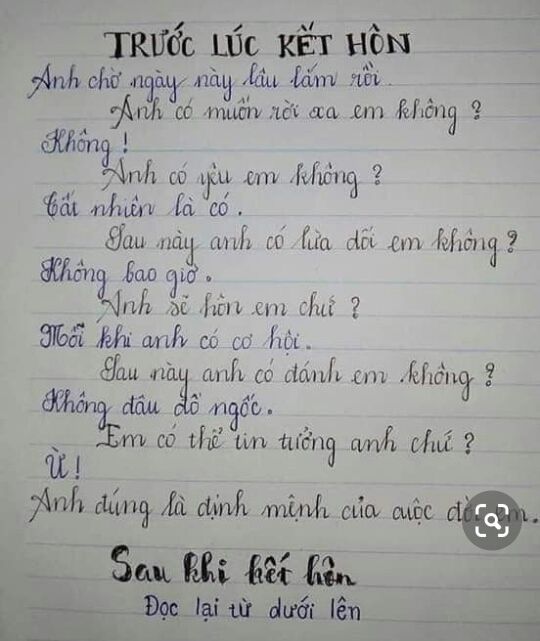 TRƯỚC LÚC KẾT HÔN
Anh chờ ngày này lâu lắm rồi.
Anh có muốn rời xa em không ?
Không !
Anh có yêu em không ?
Tất nhiên là có.
Sau này anh có lừa dối em không ?
Không bao giờ.
Anh sẽ hôn em chứ ?
Mỗi khi anh có cơ hội.
Sau này anh có đánh em không ?
Không đâu đồ ngốc.
Em có thể tin tưởng anh chứ ?
Ừ !
Anh đúng là định mệnh của cuộc em.
Sau khi kết hôn
Đọc lại từ dưới lên